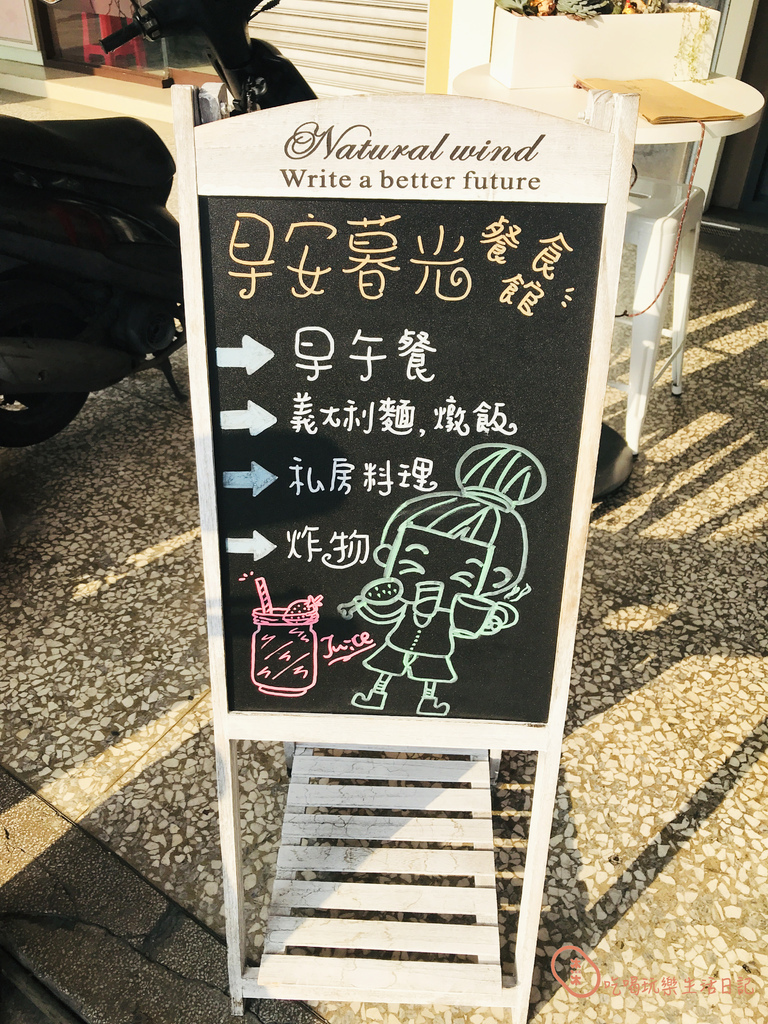 Natural wind
Write a better future
早安暮光 餐食館
早午餐
義大利麵,燉飯
私房料理
炸物
Juice
吃喝玩樂生活日記